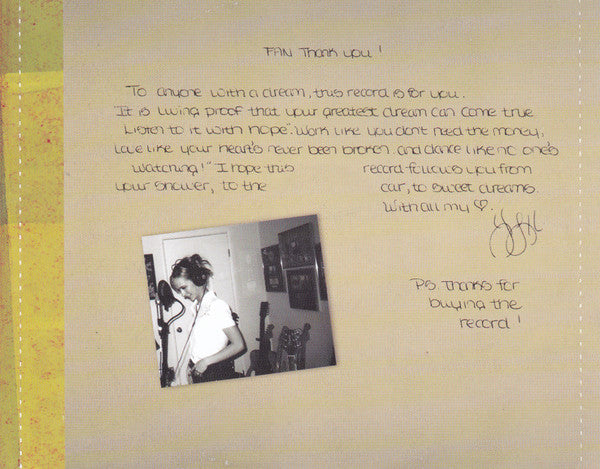 FAN Thank you!
To anyone with a dream, this record is for you.
It is living proof that your greatest dream can come true
Listen to it with hope". Work like you don't need the money,
Love like your heart's never been broken and dance like no one's
watching!" I hope this record follows you from
your shower, to the car, to sweet dreams.
With all my ♡.
PS. Thanks for
buying the
record!